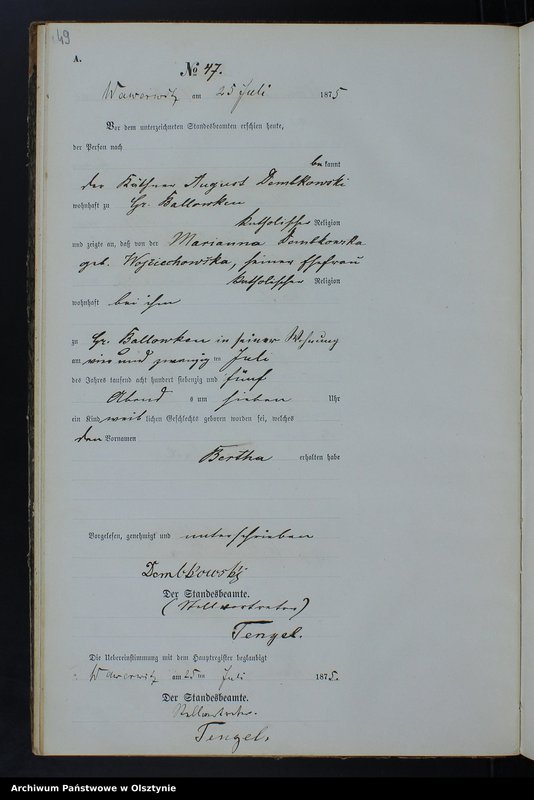 49
A.
№ 47.
Wawerwitz am 25 Juli 1875
Vor dem unterzeichneten Standesbeamten erschien heute,
der Person nach
bekannt
der Käthner August Dembkowski
wohnhaft zu Gr. Ballowken
katholischer Religion
und zeigte an, daß von der Marianna Dembkowska
geb. Wojciechowska, seiner Ehefrau
katholischer Religion
wohnhaft bei ihm
zu Gr. Ballowken in seiner Wohnung
am vier und zwanzig ten Juli
des Jahres tausend acht hundert siebenzig und fünf
Abend s um sieben Uhr
ein Kind weiblichen Geschlechts geboren worden sei, welches
den Vornamen
Bertha erhalten habe
Vorgelesen, genehmigt und unterschrieben
Dembkowski
Der Standesbeamte.
(Stellvertreter)
Tengel.
Die Uebereinstimmung mit dem Hauptregister beglaubigt
Wawerwitz am 25ten Juli 1875.
Der Standesbeamte.
Stellvertreter.
Tengel.
Archiwum Państwowe w Olsztynie